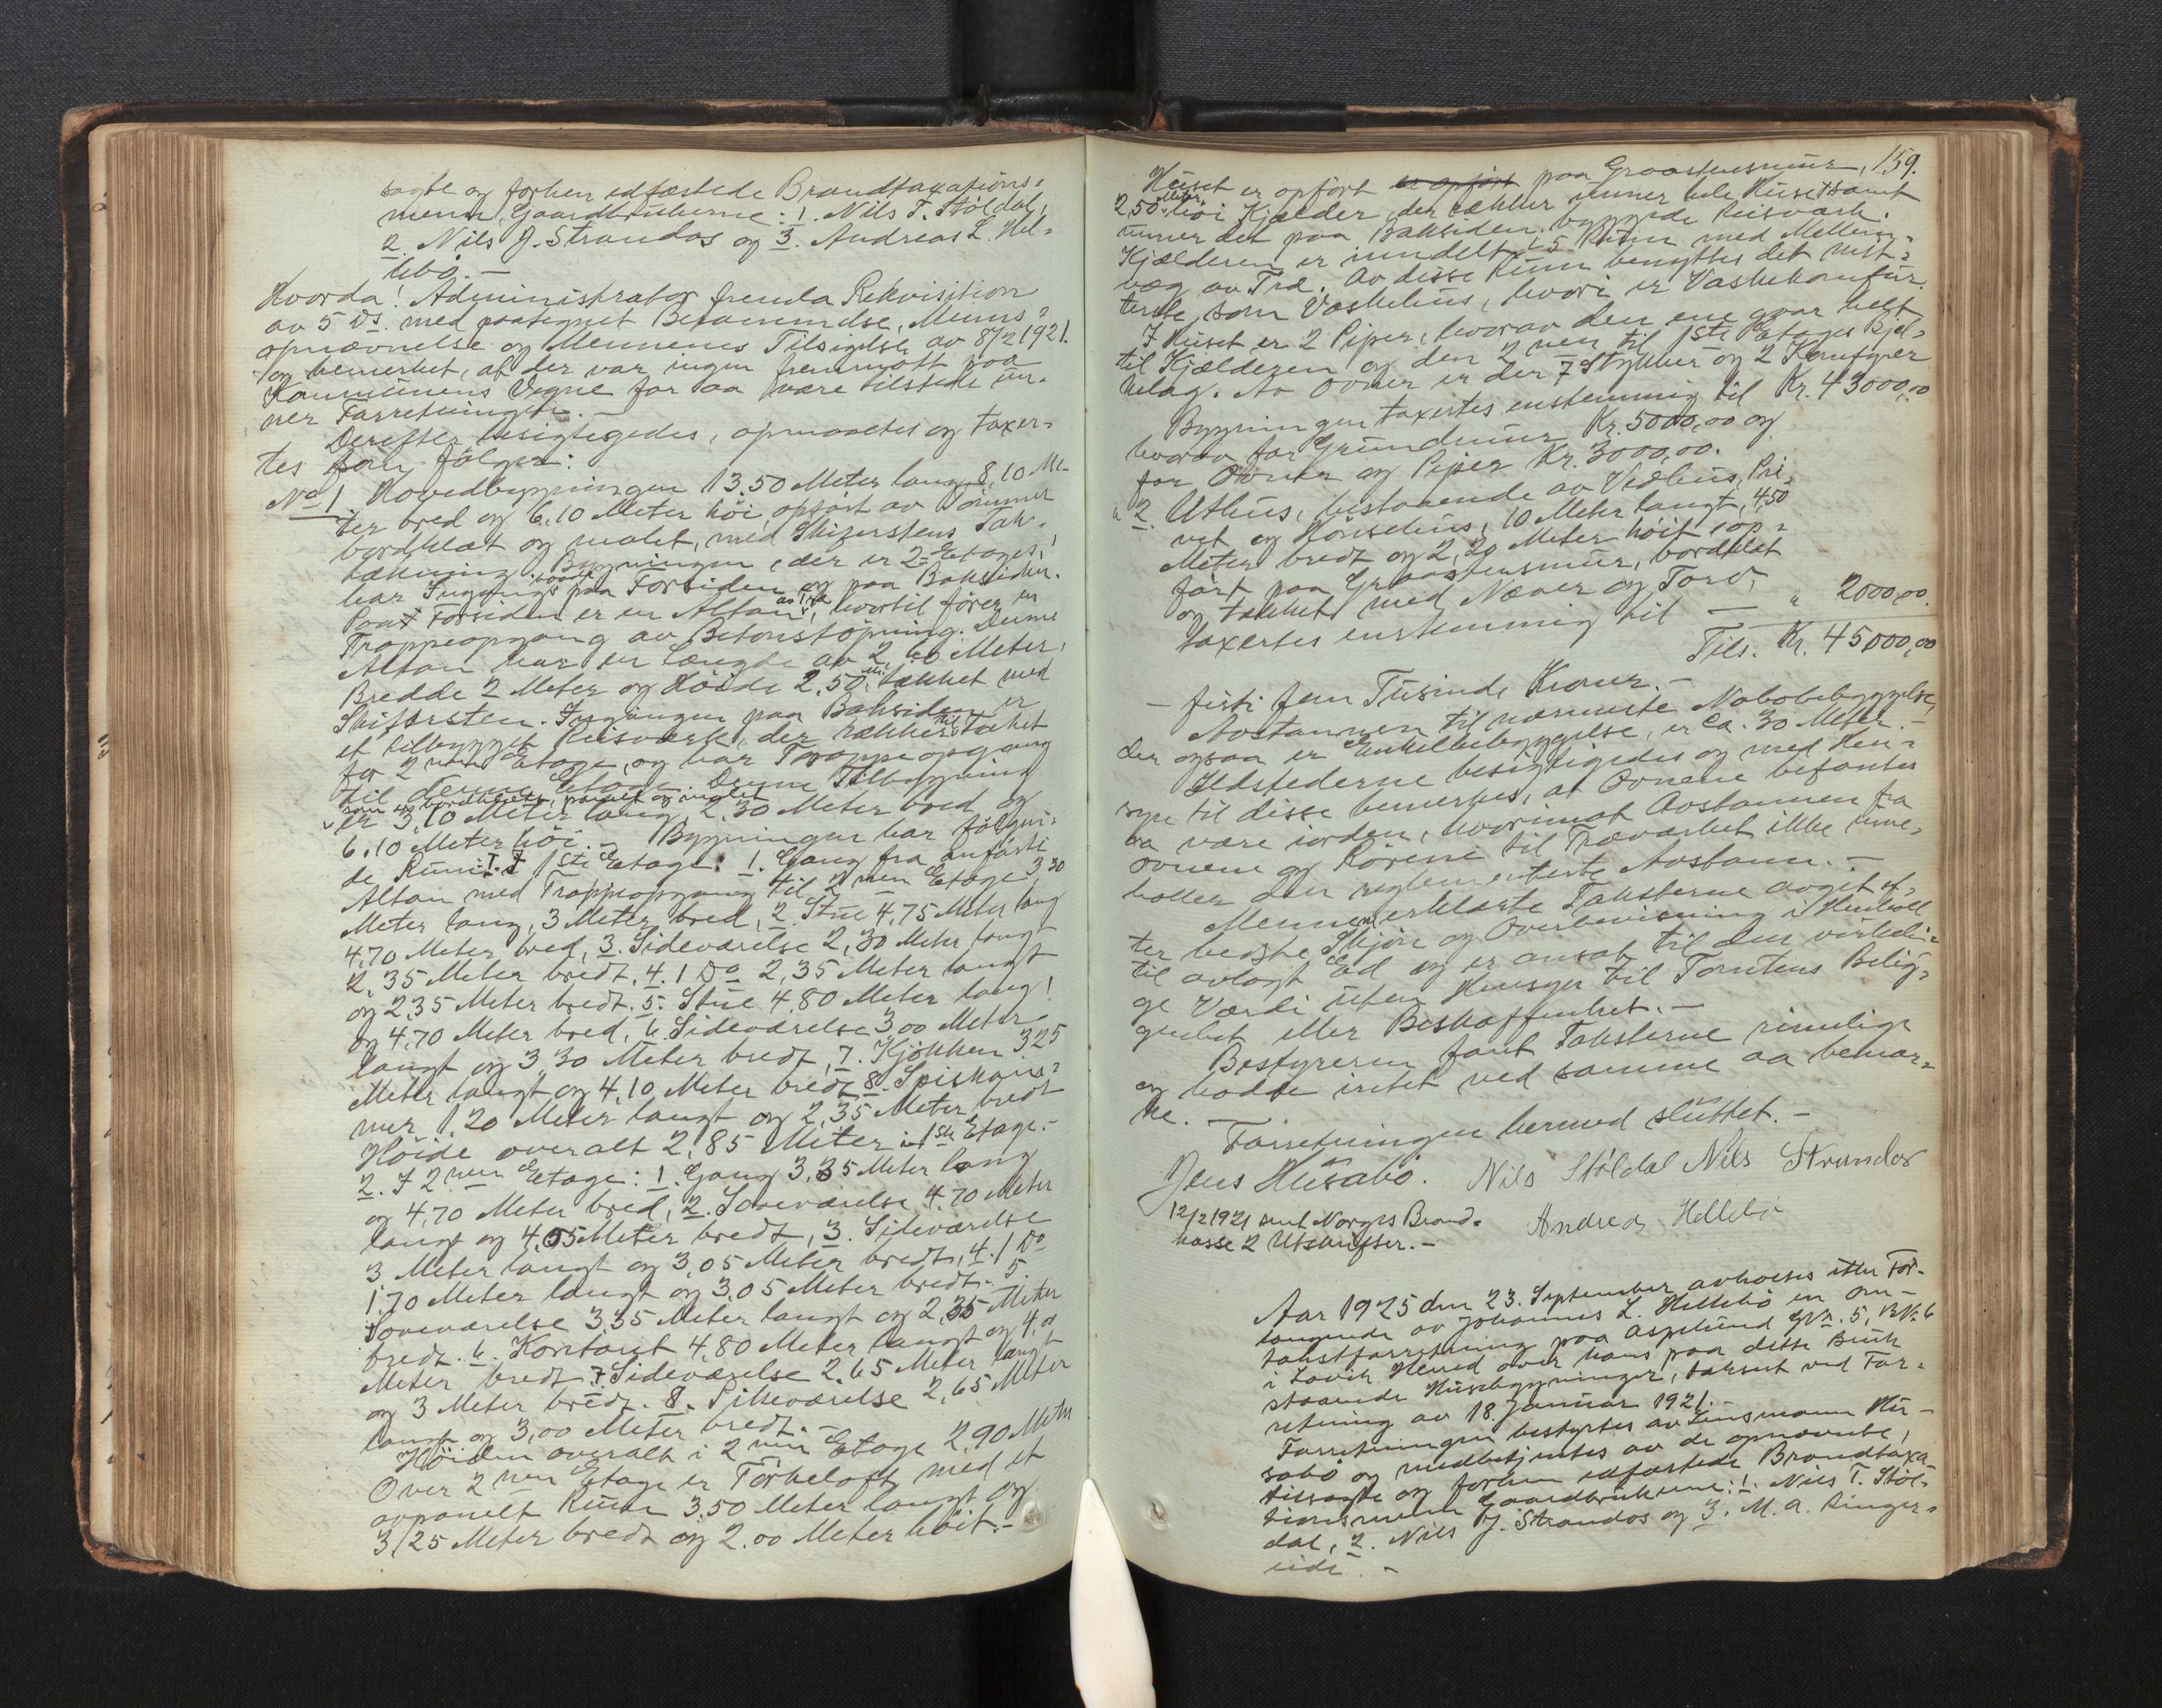 sagte og forhen edfæstede Brandtaxations-
mænd, Gaardbrukerne: 1. Nils T. Stöldal,
2. Nils J. Strandos og 3. Andreas L. Hel-
lebö. -
Hvorda! Administrator fremla Rekvisition
av 5 Ds. med paategnet Berammelse, Menns-
opnævnelse og Mennenes Tilsigelse av 8/2 1921.
og bemerket, at der var ingen fremmött paa
Kommunens Vegne for aa være tilstede un-
ner Forretningen. -
Derefter besigtigedes, opmaaltes og taxer-
tes som fölger:
No 1 Hovedbygningen 13.50 Meter lang 8,10 Me-
ter bred og 6.10 Meter höi, opfört av Tömmer
bordklæt og malet, med Skiferstens Tak-
tækning. Bygningen, der er 2 Etages,
har Indgang baade paa Forsiden og paa Baksiden.
Paa Forsiden er en Altan av Træ, hvortil förer en
Trappeopgang av Betonstöpning. Denne
Altan har en Længde av 2,60 Meter,
Bredde 2 Meter og Höide 2,50 m. tækket med
Skifersten. Indgangen paa Baksiden er
et tilbygget Reisværk, der rækker til Taket
for 2 nen Etage, og har Trappeopgang
til denne Etage. Denne Tilbygning
som er bordklædt, panelt og malet
er 3,10 Meter lang, 2,30 Meter bred og
6.10 Meter höi. - Bygningen har fölgen-
de Rum: I. I 1ste Etage: 1. Gang fra anförte
Altan med Trappeopgang til 2 nen Etage 3,30
Meter lang, 3 Meter bred, 2. Stue 4,75 Meter lang
4.70 Meter bred, 3. Sideværelse 2,30 Meter langt
2,35 Meter bredt, 4. 1 Do 2,35 Meter langt
og 2,35 Meter bredt. 5. Stue 4.80 Meter lang
og 4.70 Meter bred, 6. Sideværelse 3.00 Meter
langt og 3,30 Meter bredt, 7. Kjökken 3,25
Meter langt og 4,10 Meter bredt 8. Spiskam-
mer 1.20 Meter langt og 2,35 Meter bredt
Höide overalt 2,85 Meter i 1ste Etage. -
2. I 2 nen Etage: 1. Gang 3,35 Meter lang
og 4,70 Meter bred, 2. Soveværelse 4.70 Meter
langt og 4,05 Meter bredt, 3. Sideværelse
3 Meter langt og 3,05 Meter bredt, 4. 1 Do
1.70 Meter langt og 3,05 Meter bredt. 5.
Soveværelse 3,35 Meter langt og 2,35 Meter
bredt. 6. Kontoret 4,80 Meter langt og 4,00
Meter bredt 7. Sideværelse 2.65 Meter langt
og 3 Meter bredt. 8. Pikeværelse 2,65 Meter
langt og 3,00 Meter bredt. -
Höiden overalt i 2 nen Etage 2,90 Meter
Over 2 nen Etage er Törkeloft med et
avpanelt Rum 3,50 Meter langt og
3,25 Meter bredt og 2.00 Meter höit. -
159.
Huset er opfört er opfört paa Graastensmur,
2,50 Meter höi Kjælder, der rækker unner hele Huset samt
unner det paa Baksiden byggede Reisværk.
Kjælderen er inndelt i 5 Rum med Mellem-
væg av Træ. Av disse Rum benyttes det vest-
erste som Vaskehus, hvori er Vaskekomfur.
I Huset er 2 Piper, hvorav den ene gaar helt
til Kjælderen og den 2 nen til 1ste Etages Bjel-
kelag. Av Ovner er der 7 Stykker og 2 Komfyrer
Bygningen taxertes enstemmig til Kr. 43000,00
hvorav for Grundmur Kr. 5000,00 og
for Ovner og Piper Kr. 3000,00.
" 2. Uthus, bestaaende av Vedhus, Pri-
vet og Hönsehus, 10 Meter langt, 4,50
Meter bredt og 2,20 Meter höit, op-
fört paa Graastensmur, bordklæt
og tækket med Næver og Torv,
taxertes enstemmig til — " 2000,00
Tils. Kr. 45000,00
- firti fem Tusinde Kroner. -
Avstannen til nærmeste Nabobebyggelse,
der ogsaa er Enkeltbebyggelse, er ca. 30 Meter. -
Ildstederne besigtigedes og med Hen-
syn til disse bemerkes, at Ovnene befantes
aa være iorden, hvorimot Avstannen fra
ovnene og Rörene til Træværket ikke inne-
holler den reglementerte Avstann. -
Mennene erklærte Taksterne avgit ef-
ter bedste Skjön og Overbevisning i Henholl
til avlagt Ed og er ansat til den virkeli-
ge Værdi uten Hensyn til Tomtens Belig-
genhet eller Beskaffenhet. -
Bestyreren fant Taksterne rimelige
og hadde intet ved samme aa bemær-
ke. -
Forretningen hermed sluttet. -
Jens Husabö. Nils Stöldal Nils Strandos
12/2 1921 sent Norges Brand- Andreas Hellebö
kasse 2 Utskrifter. -
Aar 1925 den 23. September avholtes etter For-
langende av Johannes L. Hellebö en om-
takstforretning paa Asplund Gr. N. 5, B.N. 6
i Lavik Herred over hans paa dette Bruk
staaende Husebygninger, taksert ved For-
retning av 18. Januar 1921. -
Forretningen bestyrtes av Lensmann Hu-
sabö og medbetjentes av de opnævnte,
tilsagte og forhen edfæstede Brandtaxa-
tionsmenn Gaardbrukerne: 1. Nils T. Stöl-
dal, 2. Nils J. Strandos og 3. M. A. Ringer-
eide. -